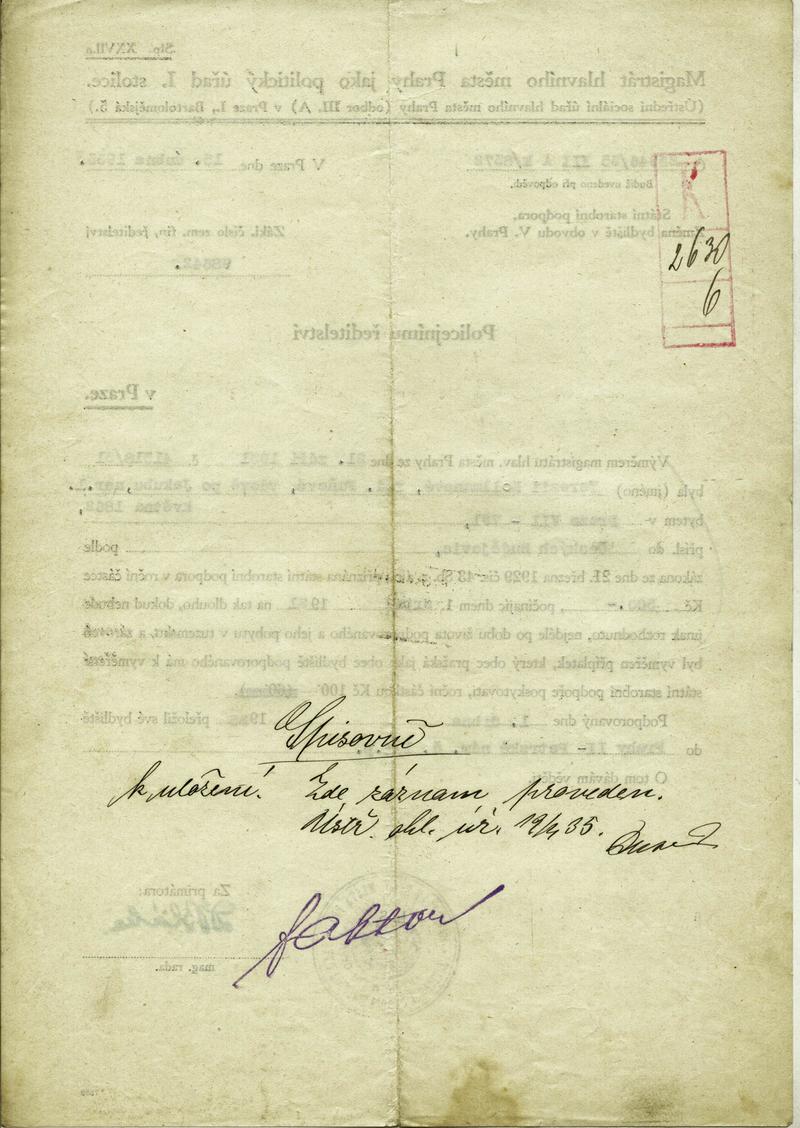 Stp. XXVII.a
Magistrát hlavního města Prahy jako politický úřad I. stolice.
(Ústřední sociální úřad hlavního města Prahy (odbor III. A) v Praze I., Bartolomějská 5.)
V Praze dne 15. dubna 1935.
Budiž uvedeno při odpovědi.
Státní starobní podpora,
změna bydliště v obvodu V. Prahy.
Zákl. číslo zem. fin. ředitelství
K
2630
6
Policejnímu ředitelství
v Praze.
Výměrem magistrátu hlav. města Prahy ze dne 21. září 1931 č.
byla (jméno) vdova po Jakubu, nar. 1.
května 1862,
bytem v Praze VII - 791,
přísl. do podle
zákona ze dne 21. března 1929 čís. 43 Sb. přiznána státní starobní podpora v roční částce
Kč 500.-, počínajíc dnem 1. 1931 na tak dlouho, dokud nebude
jinak rozhodnuto, nejdéle po dobu života podporovaného a jeho pobytu v tuzemsku, a zároveň
byl vyměřen příplatek, který obec pražská jako obec bydliště podporovaného má k vyměřené
státní starobní podpoře poskytovati, roční částkou Kč 100
Podporovaný dne 1. dubna 1935 přeložil své bydliště
do Prahy II - Petrské nám. č.
O tom dávám věděti.
Spisovně
k uložení. Zde záznam proveden.
Ústř. ohl. úř. 19/4 35.
Za primátora:
faktor
mag. rada.